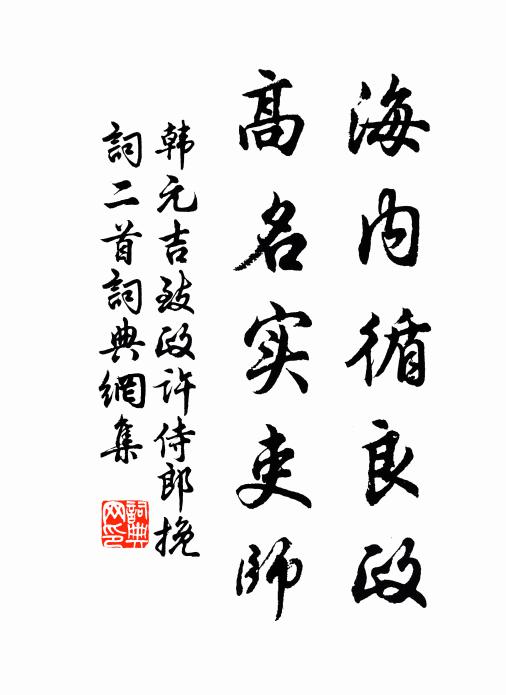 海内循良政
高名实吏师
韩元吉致政许侍郎挽
詞二首詞典網集
詞典网印